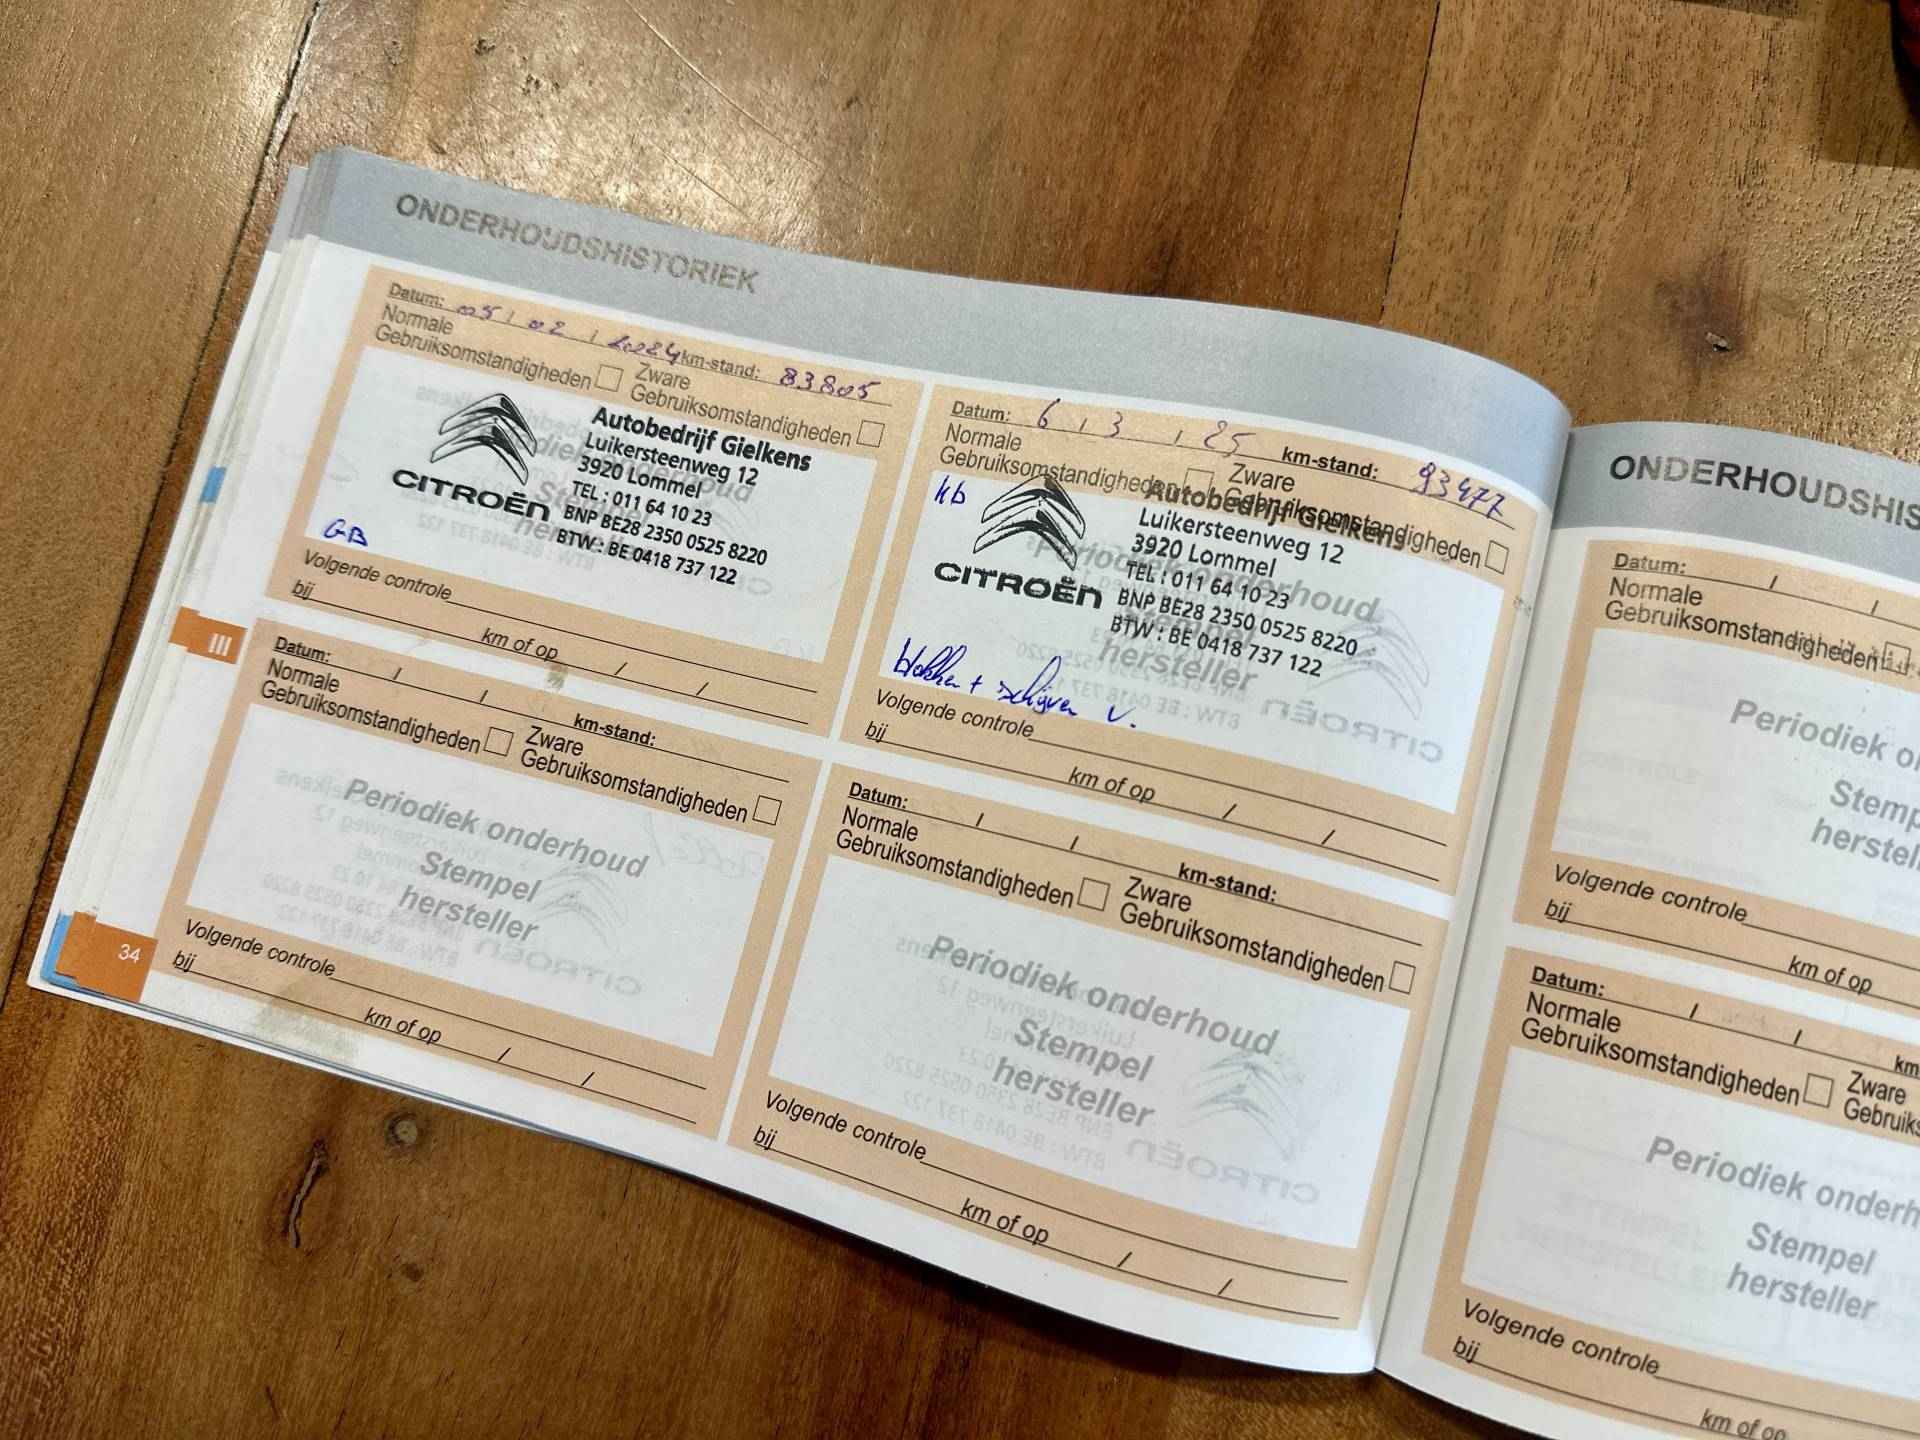 ONDERHOUDSHISTORIEK
Datum: 05 / 02 / 2024 km-stand: 83805
Normale
Gebruiksomstandigheden
Zware
Gebruiksomstandigheden
CITROËN
Autobedrijf Gielkens
Luikersteenweg 12
3920 Lommel
TEL : 011 64 10 23
BNP BE28 2350 0525 8220
BTW : BE 0418 737 122
GB
Volgende controle
bij
km of op / /
Datum: 6 / 3 / 25 km-stand: 93477
Normale
Gebruiksomstandigheden
Zware
Gebruiksomstandigheden
kb
CITROËN
Autobedrijf Gielkens
Luikersteenweg 12
3920 Lommel
TEL : 011 64 10 23
BNP BE28 2350 0525 8220
BTW : BE 0418 737 122
Periodiek onderhoud
Stempel
hersteller
blokken + schijven V.
Volgende controle
bij
km of op / /
III
Datum: / / km-stand:
Normale
Gebruiksomstandigheden
Zware
Gebruiksomstandigheden
Periodiek onderhoud
Stempel
hersteller
Volgende controle
bij
km of op / /
Datum: / / km-stand:
Normale
Gebruiksomstandigheden
Zware
Gebruiksomstandigheden
Periodiek onderhoud
Stempel
hersteller
Volgende controle
bij
km of op / /
34
ONDERHOUDSHIS
Datum: / /
Normale
Gebruiksomstandigheden
Periodiek
Stemp
herstel
Volgende controle
bij
km of op
Datum: / / km
Normale
Gebruiksomstandigheden
Zware
Gebruiks
Periodiek onderh
Stempel
hersteller
Volgende controle
bij
km of op